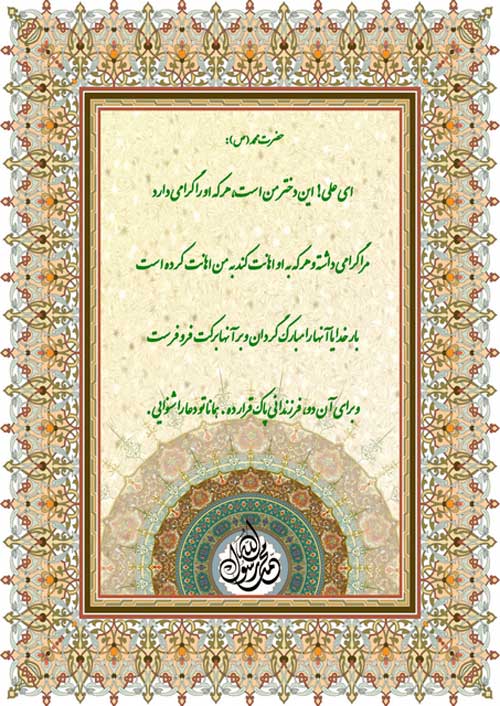 حضرت محمد (ص):
ای علی! این دختر من است، هر که او را گرامی دارد
مرا گرامی داشته و هر که به او اهانت کند به من اهانت کرده است
بار خدایا آنها را مبارک گردان و بر آنها برکت فرو فرست
و برای آن دو، فرزندانی پاک قرار ده. همانا تو دعا را شنوایی.
محمد رسول الله